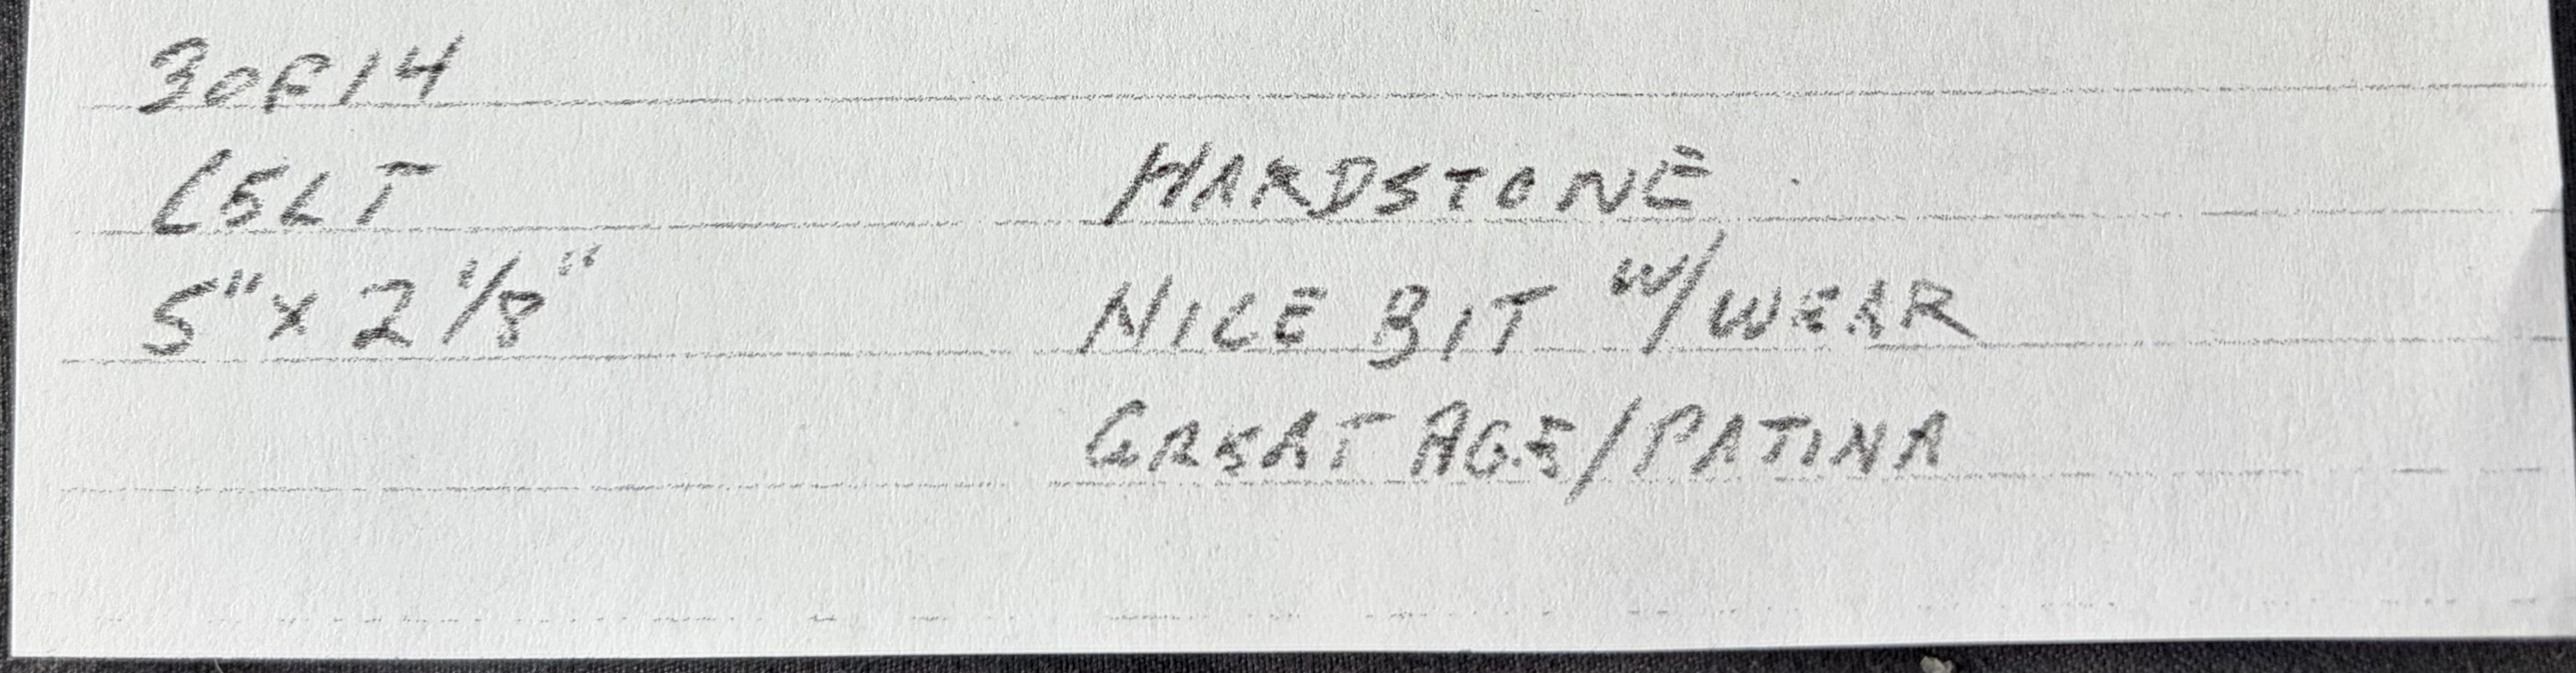 3 OF 14
CELT
5" x 2 1/8"
HARDSTONE
NICE BIT W/WEAR
GREAT AGE/PATINA